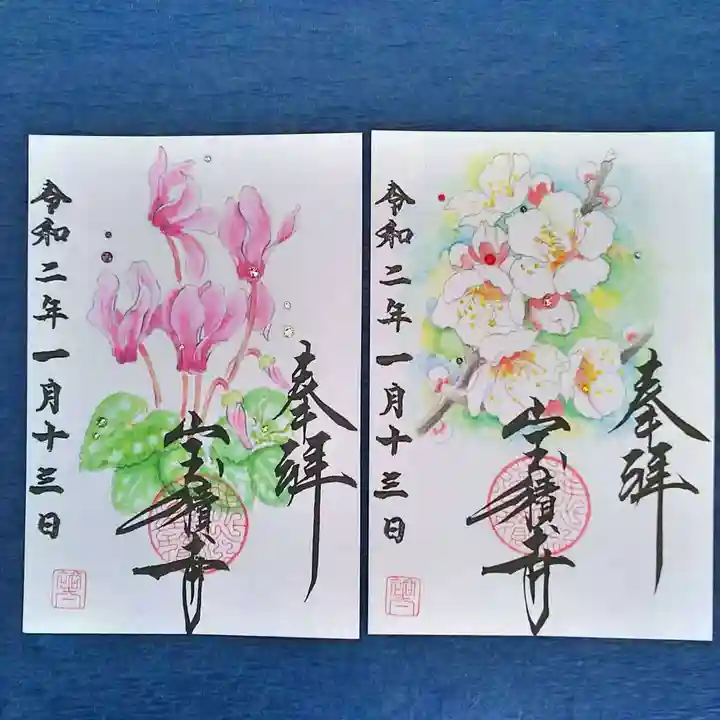 奉拝
宝積寺
令和二年一月十三日
奉拝
宝積寺
令和二年一月十三日